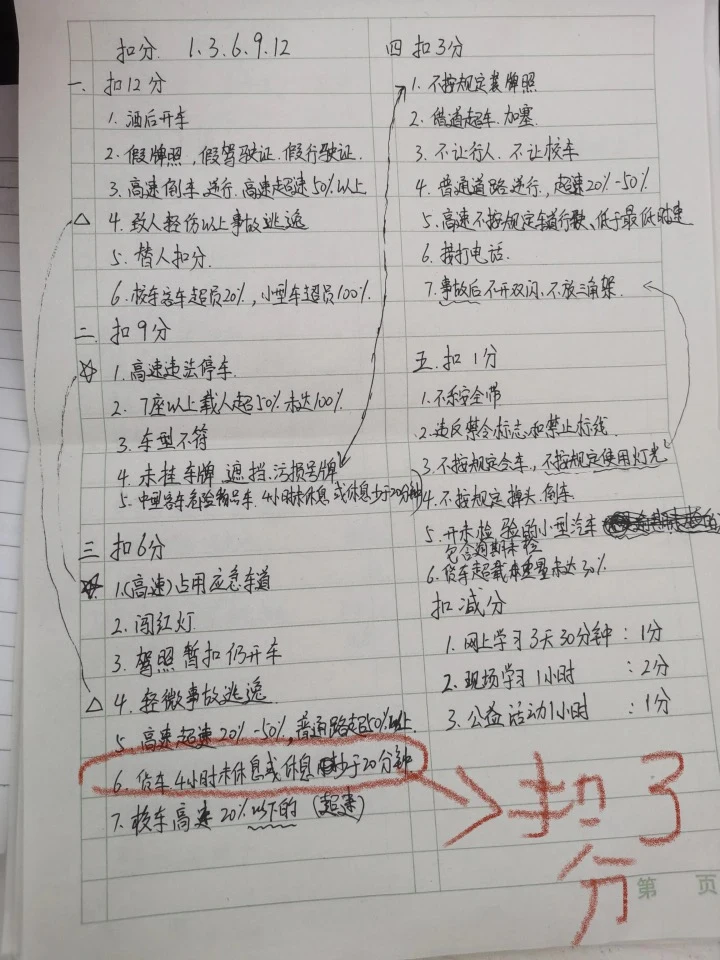 扣分. 1.3.6.9.12
一. 扣12分
1. 酒后开车
2. 假牌照, 假驾驶证. 假行驶证.
3. 高速倒车. 逆行. 高速超速50%以上
△ 4. 致人轻伤以上事故逃逸
5. 替人扣分.
6. 校车客车超员20%, 小型车超员100%.
二. 扣9分
☆ 1. 高速违法停车.
2. 7座以上载人超50%未达100%
3. 车型不符
4. 未挂车牌. 遮挡. 污损号牌
5. 中型客车危险物品车. 4小时未休息或休息少于20分钟
三 扣6分
☆ 1.(高速)占用应急车道
2. 闯红灯
3. 驾照暂扣仍开车
△ 4. 轻微事故逃逸.
5. 高速超速20%-50%, 普通路超50%以上.
6. 货车4小时未休息或休息少于20分钟
7. 校车高速20%以下的 (超速)
四 扣3分
1. 不按规定装牌照
2. 借道超车. 加塞.
3. 不让行人. 不让校车
4. 普通道路逆行, 超速20%-50%
5. 高速不按规定车道行驶、低于最低时速
6. 接打电话.
7. 事故后不开双闪. 不放三角架.
五. 扣1分
1. 不系安全带
2. 违反禁令标志和禁止标线.
3. 不按规定会车, 不按规定使用灯光
4. 不按规定掉头. 倒车.
5. 开未检验的小型汽车
包含逾期未检
6. 货车超载未达30%
扣减分
1. 网上学习3天30分钟 : 1分
2. 现场学习1小时 : 2分
3. 公益活动1小时 : 1分
扣3
分
第 页